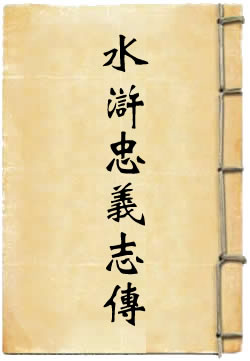 水滸忠義志傳